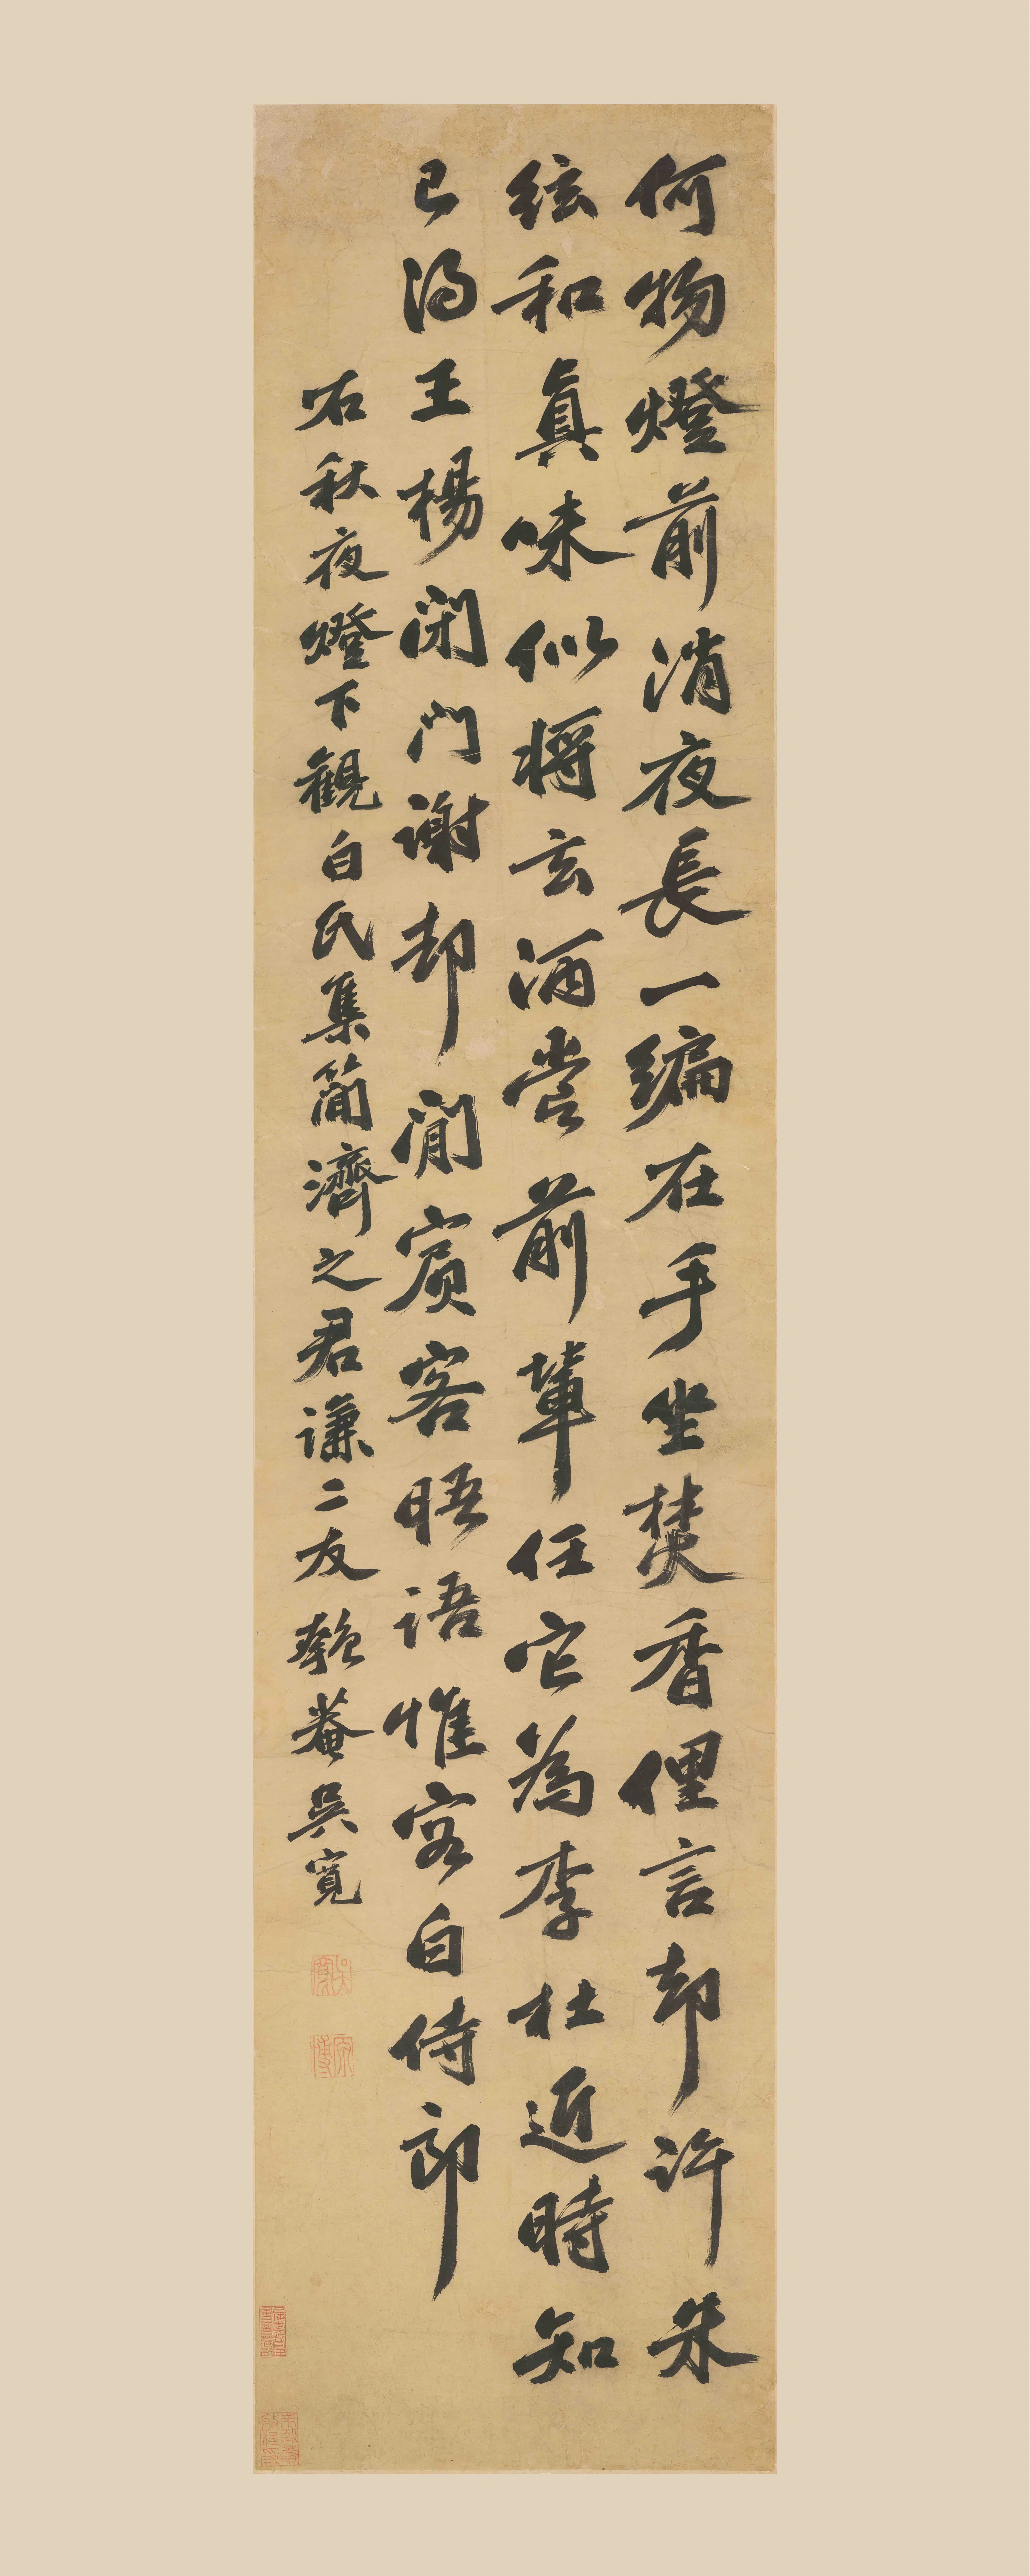 何物燈前消夜長一編在手坐焚香俚言却許朱
絃和真味似將玄酒嘗前輩任它為李杜近時知
己得王楊閉門謝却閒賓客晤語惟容白侍郎
右秋夜燈下觀白氏集簡濟之君謙二友匏菴吳寬
吳寬
原博